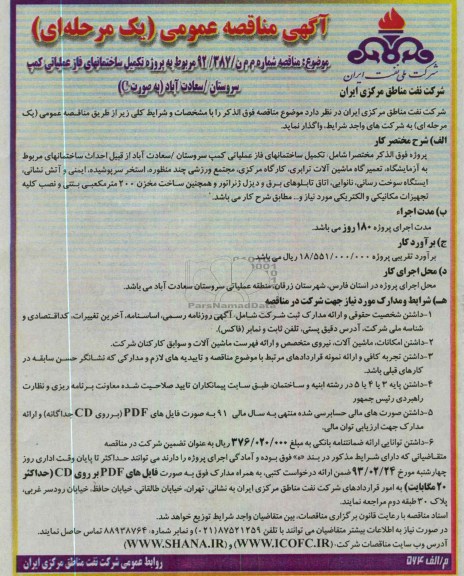 آگهی مناقصه عمومی (یک مرحله‌ای)
موضوع: مناقصه شماره م م ن/۳۸۷/ ۹۲ مربوط به پروژه تکمیل ساختمانهای فاز عملیاتی کمپ
سروستان /سعادت آباد (به صورت )
شرکت ملی نفت ایران
شرکت نفت مناطق مرکزی ایران
شرکت نفت مناطق مرکزی ایران در نظر دارد موضوع مناقصه فوق الذکر را با مشخصات و شرایط کلی زیر از طریق مناقصه عمومی (یک
مرحله ای) به شرکت های واجد شرایط، واگذار نماید.
الف) شرح مختصر کار
پروژه فوق الذکر مختصرا شامل: تکمیل ساختمانهای فاز عملیاتی کمپ سروستان /سعادت آباد از قبیل احداث ساختمانهای مربوط
به آزمایشگاه، تعمیر گاه ماشین آلات ترابری، کارگاه مرکزی، مجتمع ورزشی چند منظوره، استخر سرپوشیده، ایمنی و آتش نشانی،
ایستگاه سوخت رسانی، نانوایی، اتاق تابلوهای برق و دیزل ژنراتور و همچنین ساخت مخزن ۲۰۰ مترمکعبی بتنی و نصب کلیه
تجهیزات مکانیکی و الکتریکی مورد نیاز و... مطابق شرح کار می باشد.
ب) مدت اجراء
مدت اجرای پروژه ۱۸۰ روز می باشد.
ج) برآورد کار
برآورد تقریبی پروژه ۱۸/۵۵۱/۰۰۰/۰۰۰ ریال می باشد.
د) محل اجرای کار
محل اجرای پروژه در استان فارس، شهرستان زرقان، منطقه عملیاتی سروستان سعادت آباد می باشد.
هـ) شرایط و مدارک مورد نیاز جهت شرکت در مناقصه
۱-داشتن شخصیت حقوقی و ارائه مدارک ثبت شرکت شامل، آگهی روزنامه رسمی، اساسنامه، آخرین تغییرات، کداقتصادی و
شناسه ملی شرکت، آدرس دقیق پستی، تلفن ثابت و نمابر (فاکس).
۲-داشتن امکانات، ماشین آلات، نیروی متخصص و ارائه فهرست ماشین آلات و سوابق کارکنان شرکت.
۳-داشتن تجربه کافی و ارائه نمونه قراردادهای مرتبط با موضوع مناقصه و تاییدیه های لازم و مدارکی که نشانگر حسن سابقه در
کارهای قبلی باشد.
۴-داشتن پایه ۳ یا ۴ یا ۵ در رشته ابنیه و ساختمان، طبق سایت پیمانکاران تایید صلاحیت شده معاونت برنامه ریزی و نظارت
راهبردی رئیس جمهور
۵-داشتن صورت های مالی حسابرسی شده منتهی به سال مالی ۹۱ به صورت فایل های PDF (برروی CD جداگانه) و ارائه
مدارک جهت ارزیابی توان مالی.
۶-داشتن توانایی ارائه ضمانتنامه بانکی به مبلغ ۳۷۶/۰۲۰/۰۰۰ ریال به عنوان تضمین شرکت در مناقصه
متقاضیانی که دارای شرایط مذکور در بند «ه» فوق بوده و آمادگی اجرای پروژه را دارند می توانند حداکثر تا پایان وقت اداری روز
چهارشنبه مورخ ۹۳/۰۲/۲۴ ضمن ارائه درخواست کتبی، به همراه مدارک فوق به صورت فایل های PDF بر روی CD (حداکثر
۲۰ مگابایت) به امور قراردادهای شرکت نفت مناطق مرکزی ایران به نشانی: تهران، خیابان طالقانی، خیابان حافظ، خیابان رودسر غربی،
پلاک ۳۰ طبقه دوم مراجعه نمایند.
اسناد مناقصه با رعایت قانون برگزاری مناقصات، بین متقاضیان واجد شرایط توزیع خواهد شد.
در صورت نیاز به اطلاعات بیشتر متقاضیان می توانند با تلفن ۸۷۵۲۱۲۵۹(۰۲۱) و نمابر شماره: ۸۸۹۳۸۷۶۴ تماس حاصل نمایند.
آدرس وب سایت مناقصات شرکت: (WWW.ICOFC.IR) و (WWW.SHANA.IR)
روابط عمومی شرکت نفت مناطق مرکزی ایران
م/الف ۵۶۴
ParsNamadData